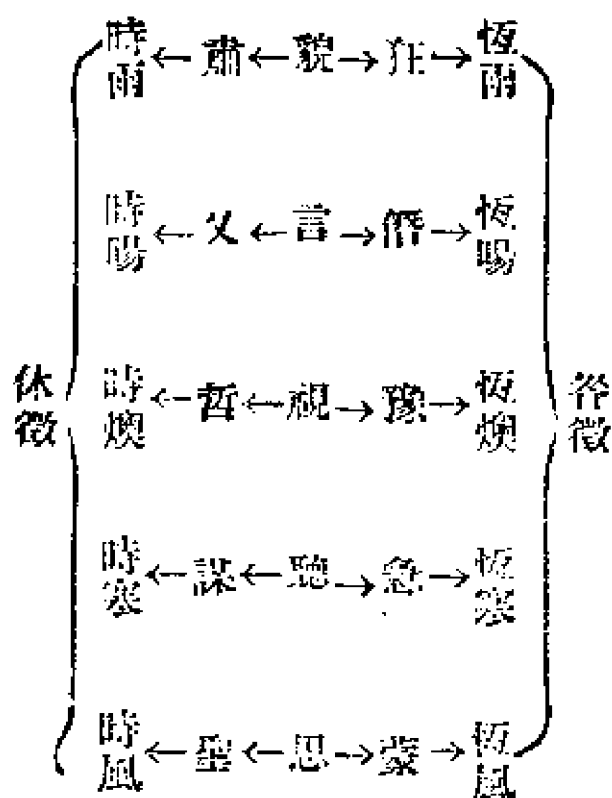 時雨←肅←貌→狂→恆雨
時暘←乂←言→僭→恆暘
休徵 時燠←哲←視→豫→恆燠 咎徵
時寒←謀←聽→急→恆寒
時風←聖←思→蒙→恆風